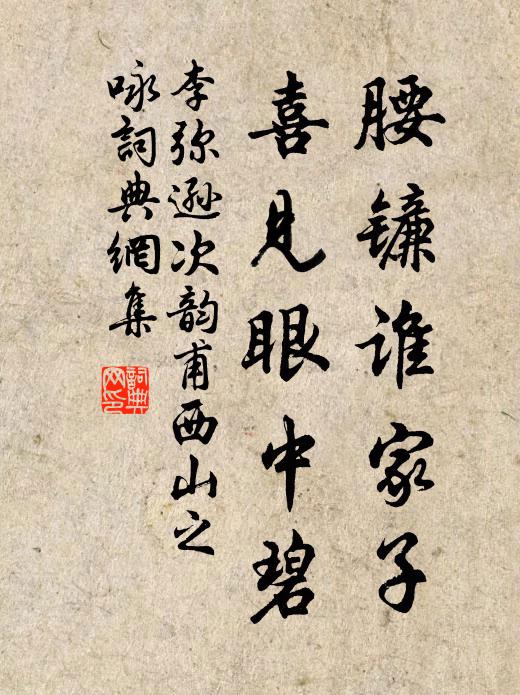 腰镰谁家子
喜见眼中碧
李弥逊次韵甫西山之
咏詞典網集
詞典网印